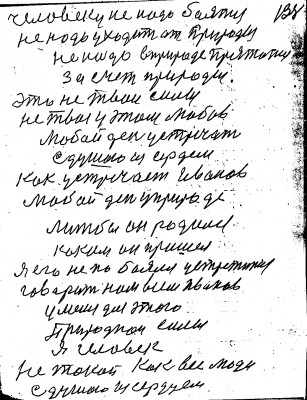 человеку не надо бояться 138
не надо уходит от природы
не надо в природе прятатся
за счет природы.
Это не твои силы
не твоя у этом любов
Любой ден устречат
с душою и сердцем
Как устречает Иванов
Любой ден у природе
он родился
каким он пришел
Я его не по боялся устретится
говорит нам всем Иванов
умения для этого
Природной силы
Я человек
не такой как все люди
с душою и сердцем